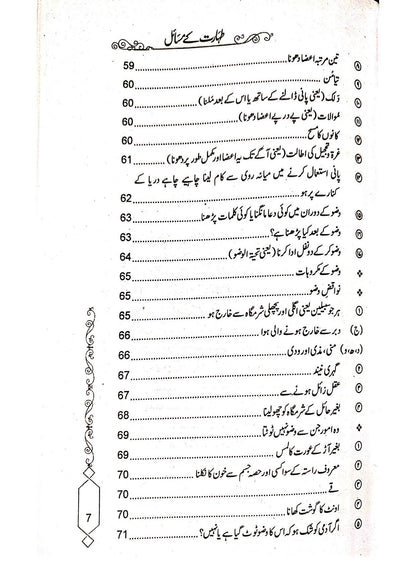 طہارت کے مسائل
۸ تین مرتبہ اعضا دھونا 59
۹ تیامُن 60
۱۰ دَلک (یعنی پانی ڈالنے کے ساتھ یا اس کے بعد مَلنا) 60
۱۱ مُوالات (یعنی پے در پے اعضا دھونا) 60
۱۲ کانوں کا مسح 60
۱۳ غرۃ و تحجیل کی اطالت (یعنی آگے تک یہ اعضا اور مکمل طور پر دھونا) 61
۱۴ پانی استعمال کرنے میں میانہ روی سے کام لینا چاہیے چاہے دریا کے
کنارے پر ہو 62
۱۵ وضو کے دوران میں کوئی دعا مانگنا یا کوئی کلمات پڑھنا 63
۱۶ وضو کے بعد کیا پڑھنا ہے؟ 63
۱۷ وضو کر کے دو نفل ادا کرنا (یعنی تحیۃ الوضو) 64
❖ وضو کے مکروہات 65
❖ نواقضِ وضو 65
۱ ہر جو سبیلین یعنی اگلی اور پچھلی شرمگاہ سے خارج ہو 65
(ج) دبر سے خارج ہونے والی ہوا 66
(د،ھ،و) منی، مذی اور ودی 66
۲ گہری نیند 67
۳ عقل زائل ہونے سے 67
۴ بغیر حائل کے شرمگاہ کو چھو لینا 68
❖ وہ امور جن سے وضو نہیں ٹوٹتا 69
۱ بغیر آڑ کے عورت کا لمس 69
۲ معروف راستہ کے سوا کسی اور حصہ جسم سے خون کا نکلنا 70
۳ قے 70
۴ اونٹ کا گوشت کھانا 70
۵ اگر آدمی کو شک ہو کہ اس کا وضو ٹوٹ گیا ہے یا نہیں؟ 71
7